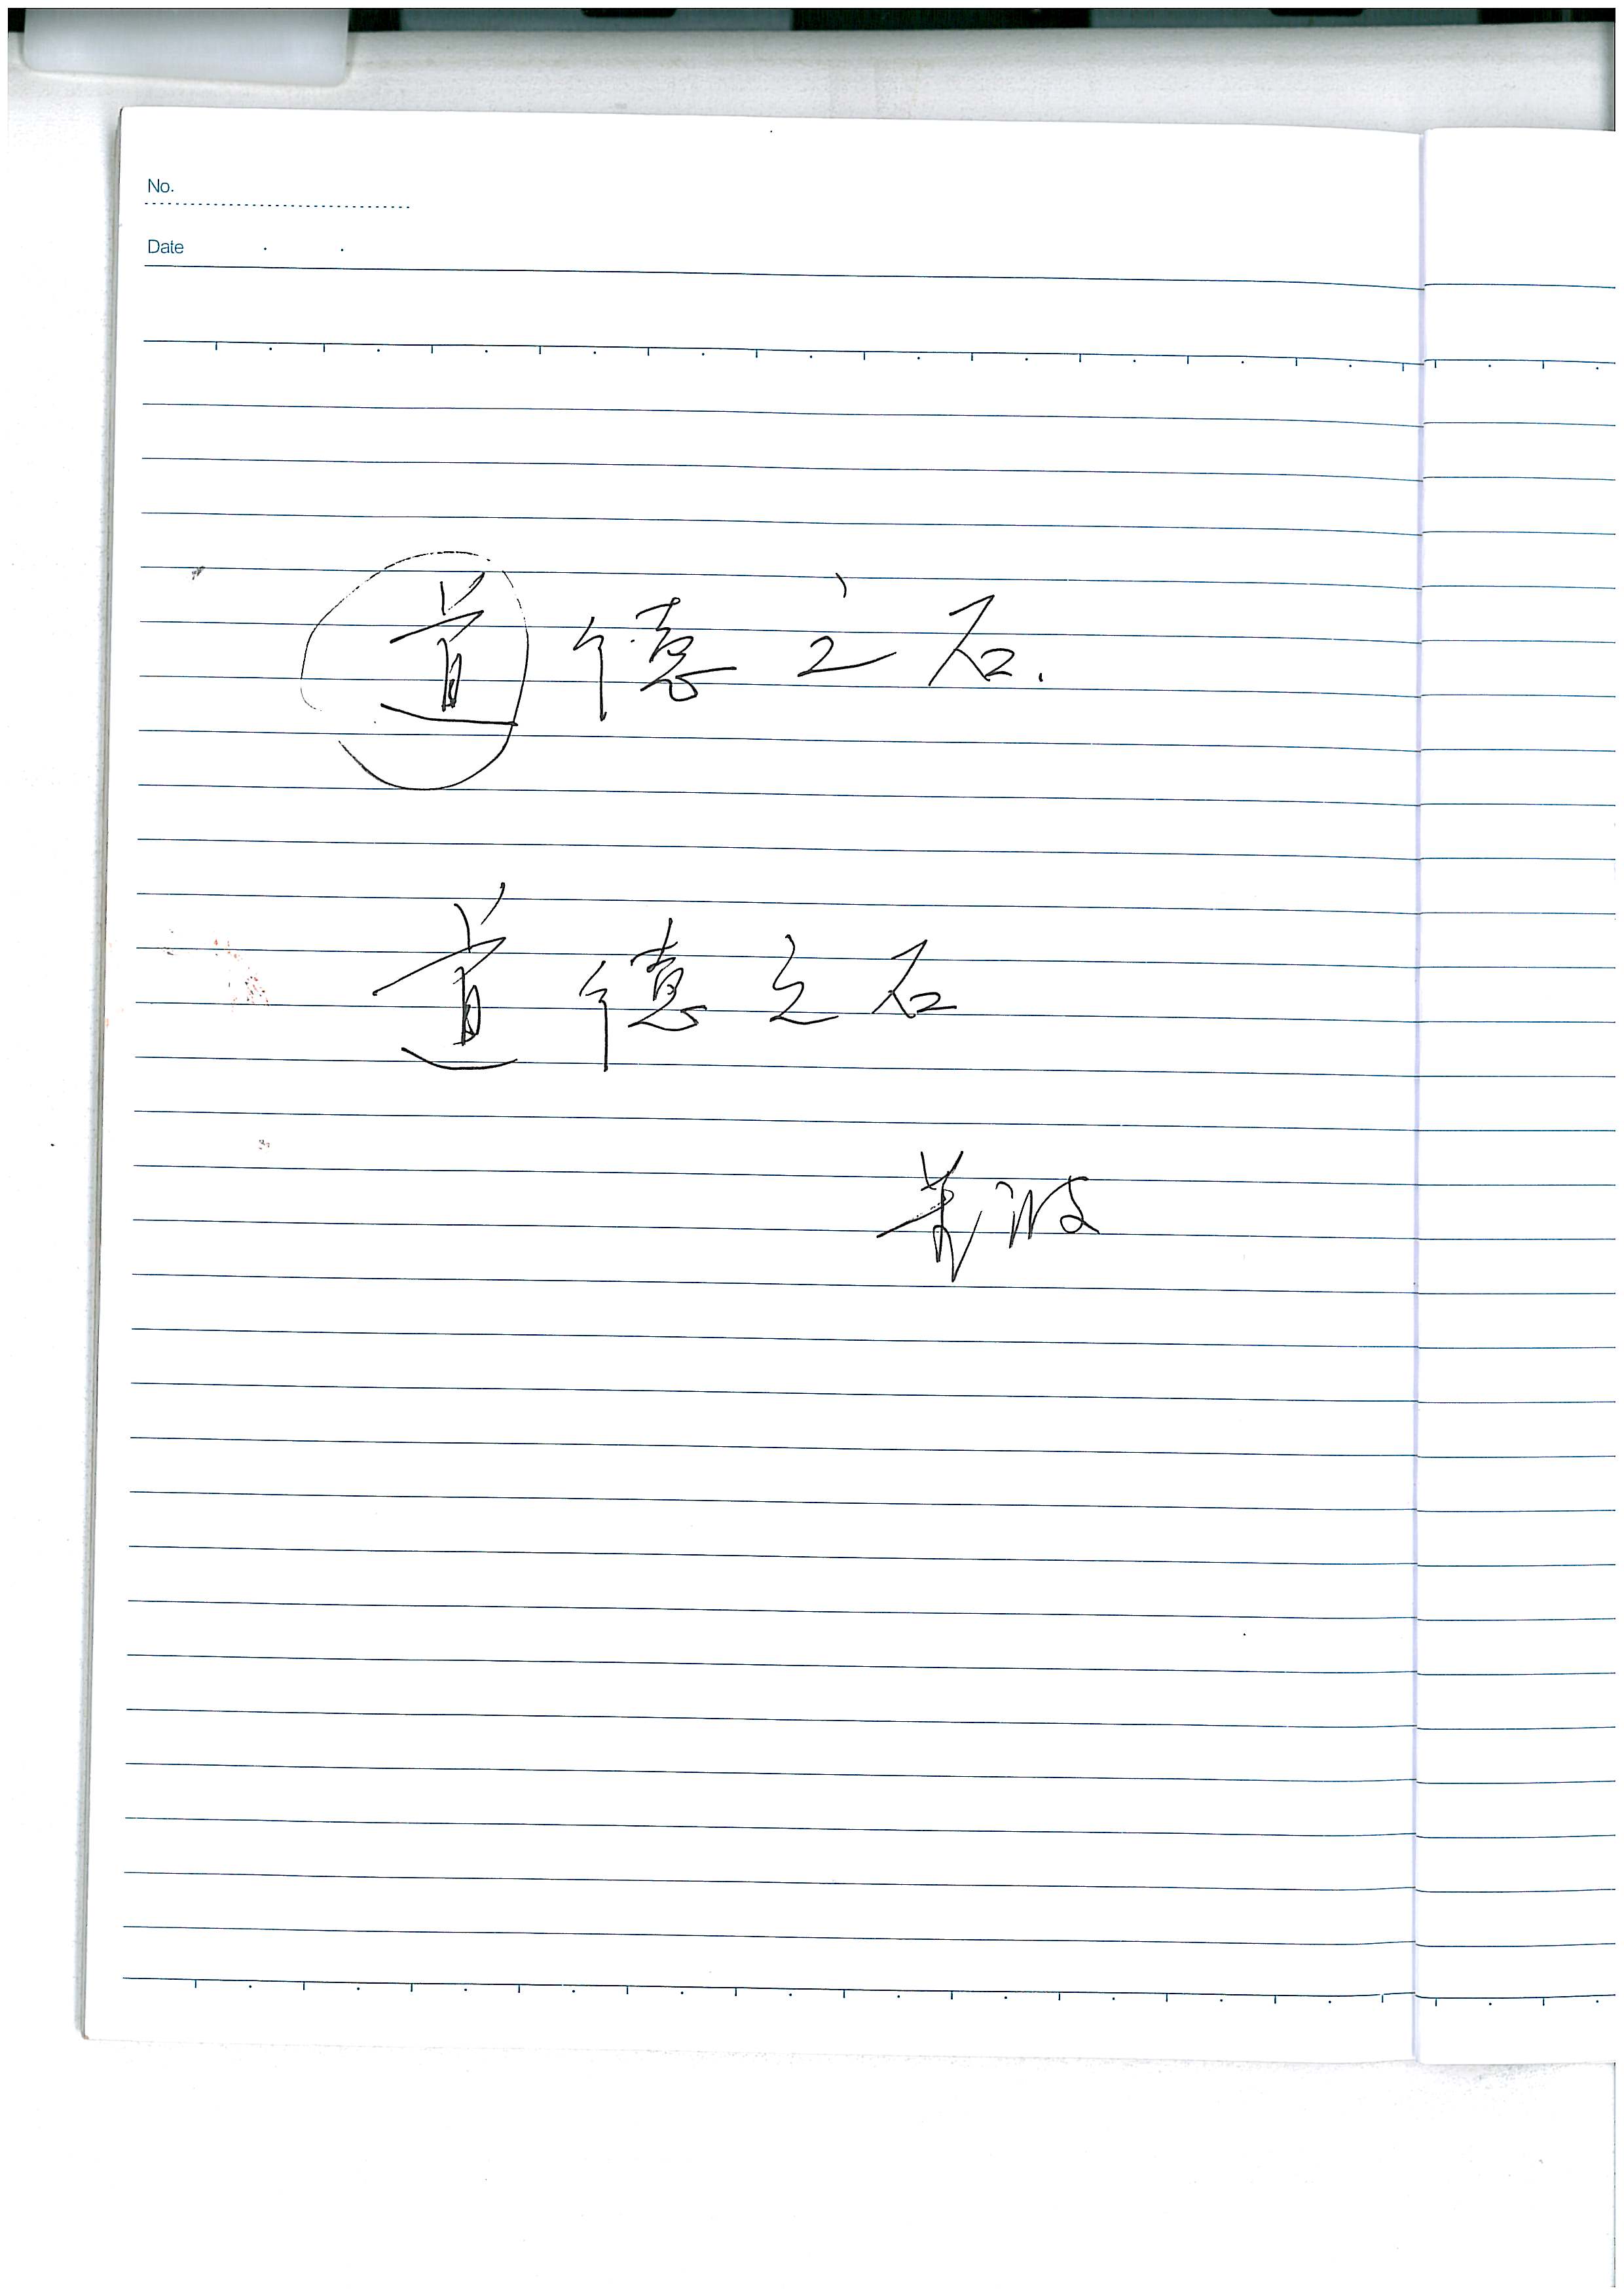 No.
Date
道德之石.
道德之石